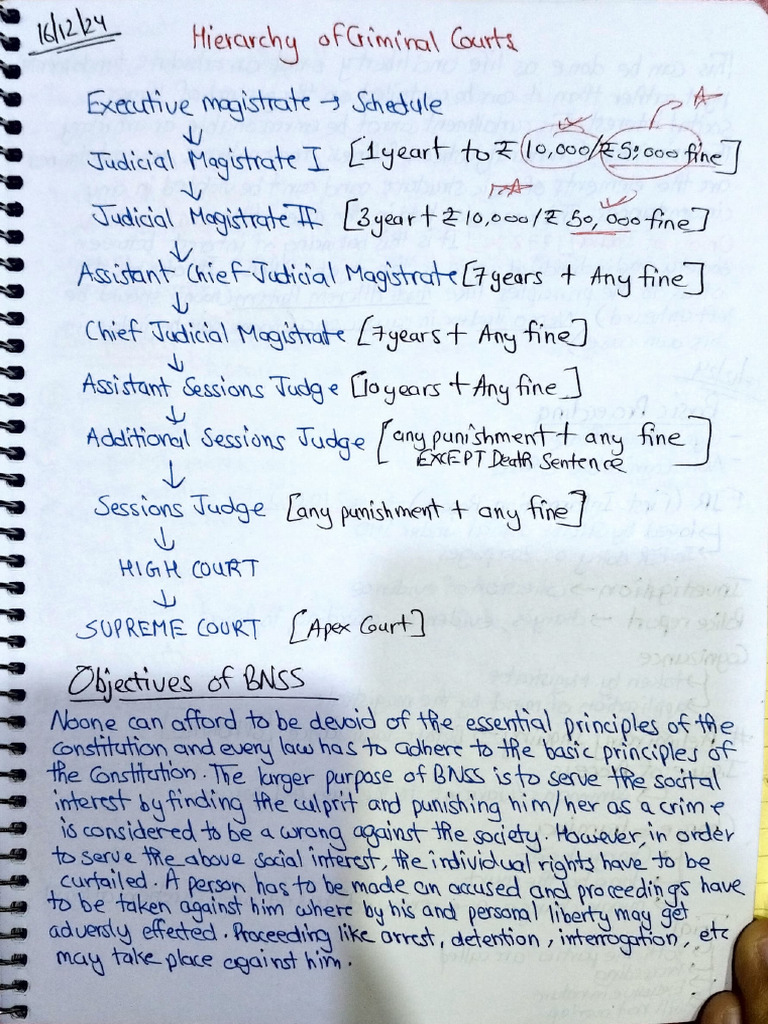 16/12/24
Hierarchy of Criminal Courts
Executive magistrate → Schedule
Judicial Magistrate I [1 yeart to ₹ 10,000/₹5,000 fine]
Judicial Magistrate II [3 year + ₹10,000/₹ 50,000 fine]
Assistant Chief Judicial Magistrate [7 years + Any fine]
Chief Judicial Magistrate [7 years + Any fine]
Assistant Sessions Judge [10 years + Any fine]
Additional Sessions Judge [any punishment + any fine
EXCEPT Death Sentence]
Sessions Judge [any punishment + any fine]
HIGH COURT
SUPREME COURT [Apex Court]
Objectives of BNSS
Noone can afford to be devoid of the essential principles of the
constitution and every law has to adhere to the basic principles of
the Constitution. The larger purpose of BNSS is to serve the socital
interest by finding the culprit and punishing him/her as a crime
is considered to be a wrong against the society. However, in order
to serve the above social interest, the individual rights have to be
curtailed. A person has to be made an accused and proceedings have
to be taken against him where by his and personal liberty may get
adversly effected. Proceeding like arrest, detention, interrogation, etc
may take place against him.